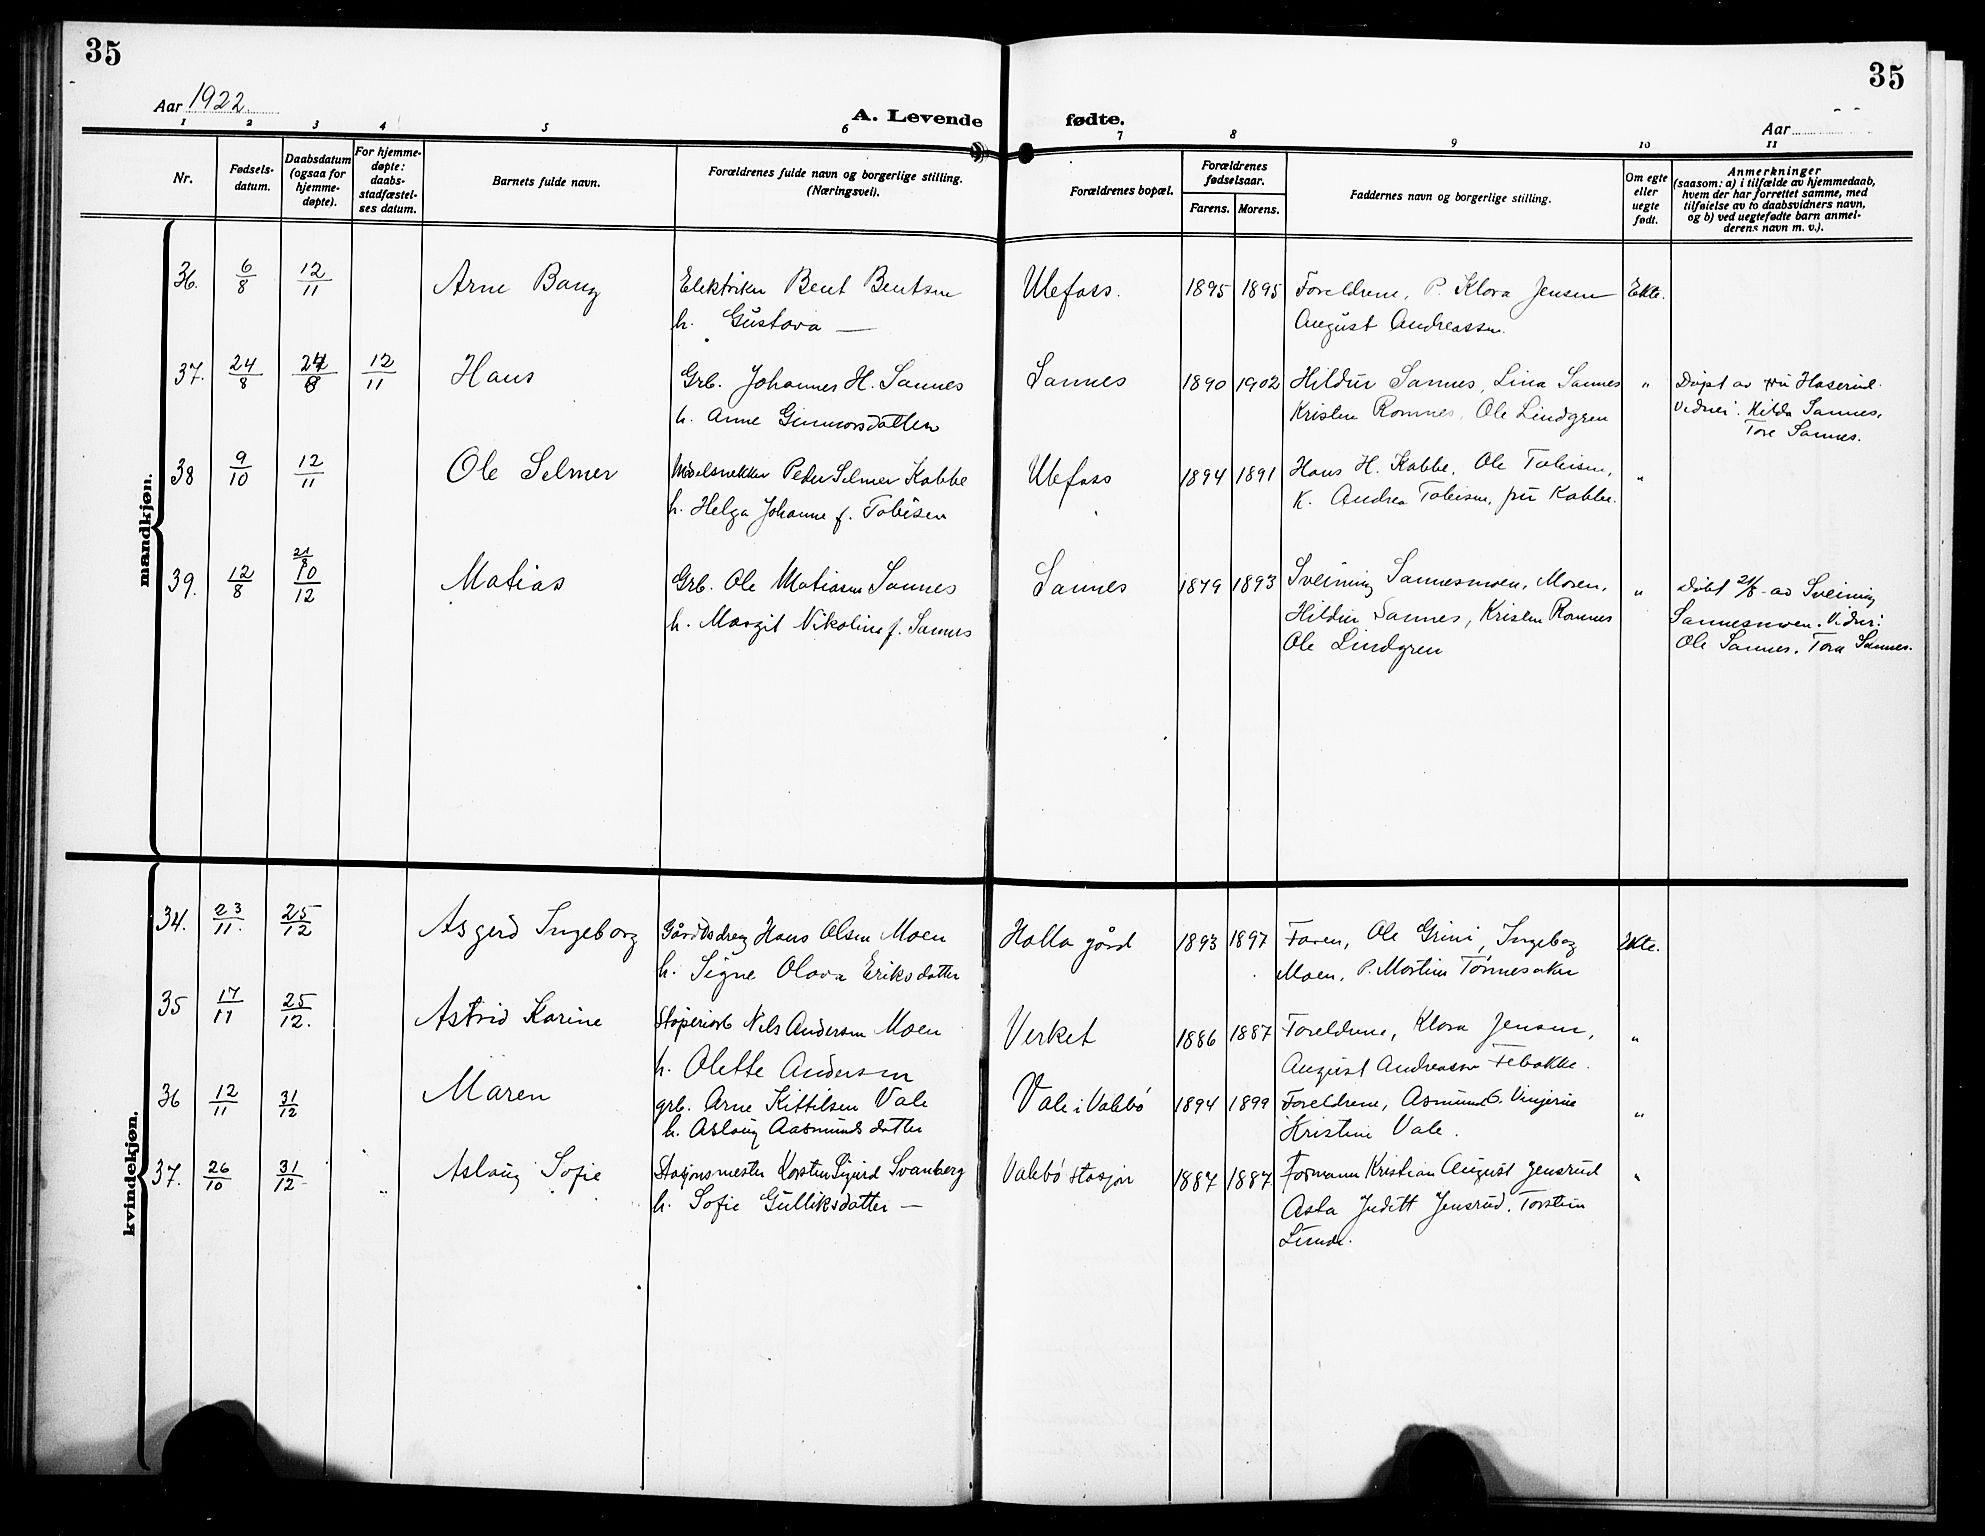 35
35
Aar 1922.
A. Levende fødte.
Aar
1 2 3 4 5 6 7 8 9 10 11
Nr.
Fødsels-
datum.
Daabsdatum
(ogsaa for
hjemme-
døpte).
For hjemme-
døpte:
daabs-
stadfæstel-
ses datum.
Barnets fulde navn.
Forældrenes fulde navn og borgerlige stilling.
(Næringsvei).
Forældrenes bopæl.
Forældrenes
fødselsaar.
Farens. Morens.
Faddernes navn og borgerlige stilling.
Om egte
eller
uegte
født.
Anmerkninger
(saasom: a) i tilfælde av hjemmedaab,
hvem der har forrettet samme, med
tilføielse av to daabsvidners navn,
og b) ved uegtefødte barn anmel-
derens navn m. v.).
mandkjøn.
36. 6/8 12/11 Arne Bang Elektriker Bent Bentsen Ulefoss. 1895 1895 Foreldrene, P. Klara Jensen Ekte.
h. Gustava — August Andreassen.
37. 24/8 24/8 12/11 Hans Grb. Johannes H. Sannes Sannes 1890 1902 Hildur Sannes, Lina Sannes " Døpt av fru Haserud.
h. Anne Gunnarsdatter Kristen Romnes, Ole Lindgren Vidner: Hilda Sannes,
Tore Sannes.
38 9/10 12/11 Ole Selmer Modelsnekker Peder Selmer Kabbe Ulefoss 1894 1891 Hans H. Kabbe, Ole Tobisen, "
h. Helga Johanne f. Tobisen K. Andrea Tobisen, fru Kabbe.
39. 12/8 21/8 10/12 Matias Grb. Ole Matiasen Sannes Sannes 1879 1893 Sveinung Sannesmoen, Moren, " Døbt 21/8 av Sveinung
h. Margit Nikoline f. Sannes Hildur Sannes, Kristen Romnes Sannesmoen. Vidner:
Ole Lindgren Ole Sannes. Tora Sannes.
kvindekjøn.
34. 23/11. 25/12 Asgerd Ingeborg Gårdsdreng Hans Olsen Moen Holla gård 1893 1897 Faren, Ole Grini, Ingeborg Ekte.
h. Signe Olava Eriksdatter Moen, P. Martin Tønnesaker
35 17/11 25/12. Astrid Karine Støperiarb Nils Andersen Moen Verket 1886 1887 Foreldrene, Klara Jensen, "
h. Olette Andersen August Andreassen Febakke.
36 12/11 31/12 Maren grb. Arne Kittilsen Vale Vale i Valebø 1894 1899 Foreldrene, Asmund G. Vinjerui "
h. Aslaug Aasmundsdatter Kristine Vale.
37. 26/10 31/12 " Aslaug Sofie Stasjonsmester Karsten Sigurd Svanberg Valebø stasjon 1887 1887 Formann Kristian August Jensrud "
h. Sofie Gulliksdatter — Asta Juditt Jensrud, Torstein
Lunde.